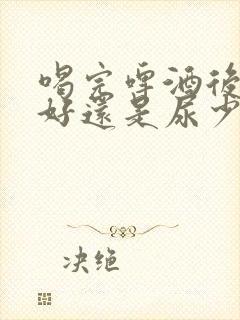 喝完啤酒後
好還是尿少
决绝